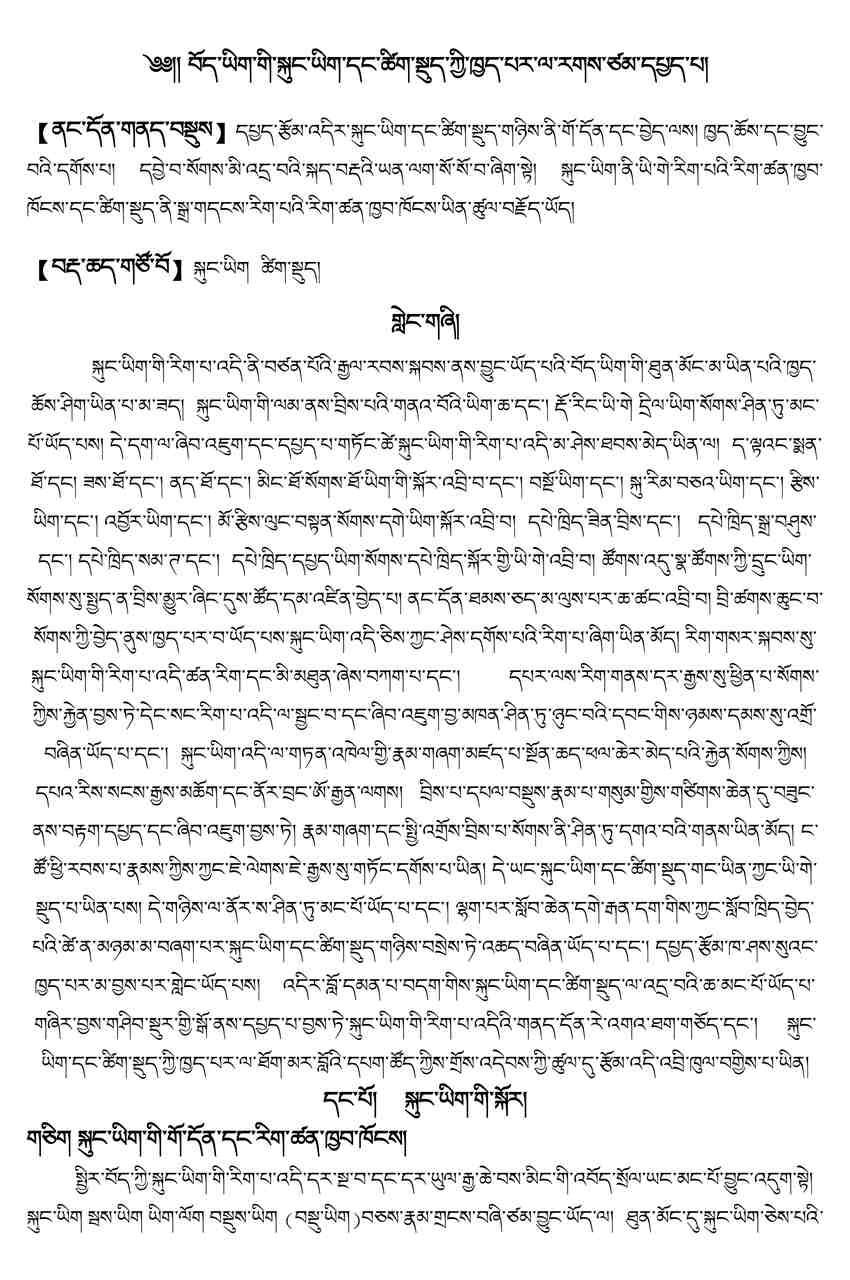 ༄༅།། བོད་ཡིག་གི་སྐུང་ཡིག་དང་ཚིག་སྡུད་ཀྱི་ཁྱད་པར་ལ་རགས་ཙམ་དཔྱད་པ།
【ནང་དོན་གནད་བསྡུས】དཔྱད་རྩོམ་འདིར་སྐུང་ཡིག་དང་ཚིག་སྡུད་གཉིས་ནི་གོ་དོན་དང་བྱེད་ལས། ཁྱད་ཆོས་དང་བྱུང་
བའི་དགོས་པ། དབྱེ་བ་སོགས་མི་འདྲ་བའི་སྐད་བརྡའི་ཡན་ལག་སོ་སོ་བ་ཞིག་སྟེ། སྐུང་ཡིག་ནི་ཡི་གེ་རིག་པའི་རིག་ཚན་ཁྱབ་
ཁོངས་དང་ཚིག་སྡུད་ནི་སྒྲ་གདངས་རིག་པའི་རིག་ཚན་ཁྱབ་ཁོངས་ཡིན་ཚུལ་བརྗོད་ཡོད།
【བརྡ་ཆད་གཙོ་བོ】སྐུང་ཡིག ཚིག་སྡུད།
གླེང་གཞི།
སྐུང་ཡིག་གི་རིག་པ་འདི་ནི་བཙན་པོའི་རྒྱལ་རབས་སྐབས་ནས་བྱུང་ཡོད་པའི་བོད་ཡིག་གི་ཐུན་མོང་མ་ཡིན་པའི་ཁྱད་
ཆོས་ཤིག་ཡིན་པ་མ་ཟད། སྐུང་ཡིག་གི་ལམ་ནས་བྲིས་པའི་གནའ་བོའི་ཡིག་ཆ་དང་། རྡོ་རིང་ཡི་གེ དྲིལ་ཡིག་སོགས་ཤིན་ཏུ་མང་
པོ་ཡོད་པས། དེ་དག་ལ་ཞིབ་འཇུག་དང་དཔྱད་པ་གཏོང་ཚེ་སྐུང་ཡིག་གི་རིག་པ་འདི་མ་ཤེས་ཐབས་མེད་ཡིན་ལ། ད་ལྟའང་སྨན་
ཐོ་དང། ཟས་ཐོ་དང་། ནད་ཐོ་དང་། མིང་ཐོ་སོགས་ཐོ་ཡིག་གི་སྐོར་འབྲི་བ་དང་། བསྔོ་ཡིག་དང་། སྐུ་རིམ་བཅའ་ཡིག་དང་། རྩིས་
ཡིག་དང་། འབྱོར་ཡིག་དང་། མོ་རྩིས་ལུང་བསྟན་སོགས་དགེ་ཡིག་སྐོར་འབྲི་བ། དཔེ་ཁྲིད་ཟིན་བྲིས་དང་། དཔེ་ཁྲིད་སྒྲ་བཤུས་
དང་། དཔེ་ཁྲིད་སམ་ཏ་དང་། དཔེ་ཁྲིད་དཔྱད་ཡིག་སོགས་དཔེ་ཁྲིད་སྐོར་གྱི་ཡི་གེ་འབྲི་བ། ཚོགས་འདུ་སྣ་ཚོགས་ཀྱི་དྲུང་ཡིག་
སོགས་སུ་སྤྱད་ན་བྲིས་མྱུར་ཞིང་དུས་ཚོད་དམ་འཛིན་བྱེད་པ། ནང་དོན་ཐམས་ཅད་མ་ལུས་པར་ཆ་ཚང་འབྲི་བ། བྲི་ཚགས་ཆུང་བ་
སོགས་ཀྱི་བྱེད་ནུས་ཁྱད་པར་བ་ཡོད་པས་སྐུང་ཡིག་འདི་ཅིས་ཀྱང་ཤེས་དགོས་པའི་རིག་པ་ཞིག་ཡིན་མོད། རིག་གསར་སྐབས་སུ་
སྐུང་ཡིག་གི་རིག་པ་འདི་ཚན་རིག་དང་མི་མཐུན་ཞེས་བཀག་པ་དང་། དཔར་ལས་རིག་གནས་དར་རྒྱས་སུ་ཕྱིན་པ་སོགས་
ཀྱིས་རྐྱེན་བྱས་ཏེ་དེང་སང་རིག་པ་འདི་ལ་སྦྱང་བ་དང་ཞིབ་འཇུག་བྱ་མཁན་ཤིན་ཏུ་ཉུང་བའི་དབང་གིས་ཉམས་དམས་སུ་འགྲོ་
བཞིན་ཡོད་པ་དང་། སྐུང་ཡིག་འདི་ལ་གཏན་འཁེལ་གྱི་རྣམ་གཞག་མཛད་པ་སྔོན་ཆད་ཕལ་ཆེར་མེད་པའི་རྐྱེན་སོགས་ཀྱིས།
དཔའ་རིས་སངས་རྒྱས་མཆོག་དང་ནོར་བྲང་ཨོ་རྒྱན་ལགས། བྲིས་པ་དཔལ་བསྡུས་རྣམ་པ་གསུམ་གྱིས་གཙིགས་ཆེན་དུ་བཟུང་
ནས་བརྟག་དཔྱད་དང་ཞིབ་འཇུག་བྱས་ཏེ། རྣམ་གཞག་དང་སྤྱི་འགྲོས་བྲིས་པ་སོགས་ནི་ཤིན་ཏུ་དགའ་བའི་གནས་ཡིན་མོད། ང་
ཚོ་ཕྱི་རབས་པ་རྣམས་ཀྱིས་ཀྱང་ཇེ་ལེགས་ཇེ་རྒྱས་སུ་གཏོང་དགོས་པ་ཡིན། དེ་ཡང་སྐུང་ཡིག་དང་ཚིག་སྡུད་གང་ཡིན་ཀྱང་ཡི་གེ་
སྡུད་པ་ཡིན་པས། དེ་གཉིས་ལ་ནོར་ས་ཤིན་ཏུ་མང་པོ་ཡོད་པ་དང་། ལྷག་པར་སློབ་ཆེན་དགེ་རྒན་དག་གིས་ཀྱང་སློབ་ཁྲིད་བྱེད་
པའི་ཚེ་ན་མཉམ་མ་བཞག་པར་སྐུང་ཡིག་དང་ཚིག་སྡུད་གཉིས་བསྲེས་ཏེ་འཆད་བཞིན་ཡོད་པ་དང་། དཔྱད་རྩོམ་ཁ་ཤས་སུའང་
ཁྱད་པར་མ་བྱས་པར་གླེང་ཡོད་པས། འདིར་བློ་དམན་པ་བདག་གིས་སྐུང་ཡིག་དང་ཚིག་སྡུད་ལ་འདྲ་བའི་ཆ་མང་པོ་ཡོད་པ་
གཞིར་བྱས་གཤིབ་སྡུར་གྱི་སྒོ་ནས་དཔྱད་པ་བྱས་ཏེ་སྐུང་ཡིག་གི་རིག་པ་འདིའི་གནད་དོན་རེ་འགའ་ཐག་གཅོད་དང་། སྐུང་
ཡིག་དང་ཚིག་སྡུད་ཀྱི་ཁྱད་པར་ལ་ཐོག་མར་བློའི་དཔག་ཚོད་ཀྱིས་གྲོས་འདེབས་ཀྱི་ཚུལ་དུ་རྩོམ་འདི་འབྲི་ཁུལ་བགྱིས་པ་ཡིན།
དང་པོ། སྐུང་ཡིག་གི་སྐོར།
གཅིག སྐུང་ཡིག་གི་གོ་དོན་དང་རིག་ཚན་ཁྱབ་ཁོངས།
སྤྱིར་བོད་ཀྱི་སྐུང་ཡིག་གི་རིག་པ་འདི་དར་སྔ་བ་དང་དར་ཡུལ་རྒྱ་ཆེ་བས་མིང་གི་འབོད་སྲོལ་ཡང་མང་པོ་བྱུང་འདུག་སྟེ།
སྐུང་ཡིག སྦས་ཡིག ཡིག་ལོག བསྡུས་ཡིག (བསྡུ་ཡིག)བཅས་རྣམ་གྲངས་བཞི་ཙམ་བྱུང་ཡོད་ལ། ཐུན་མོང་དུ་སྐུང་ཡིག་ཅེས་པའི་